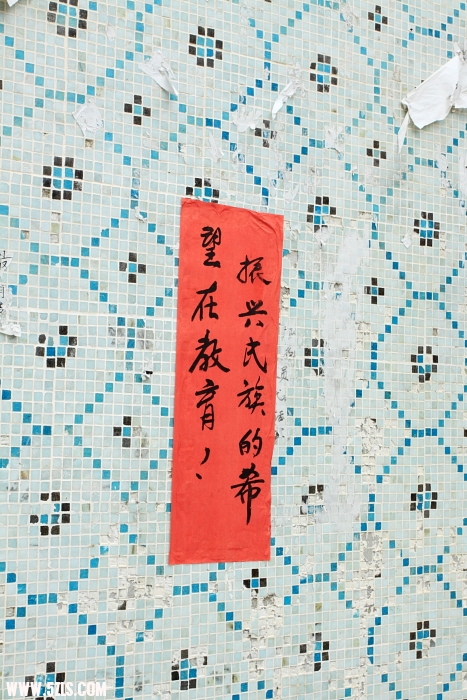 振兴民族的希
望在教育！
WWW.52IS.COM